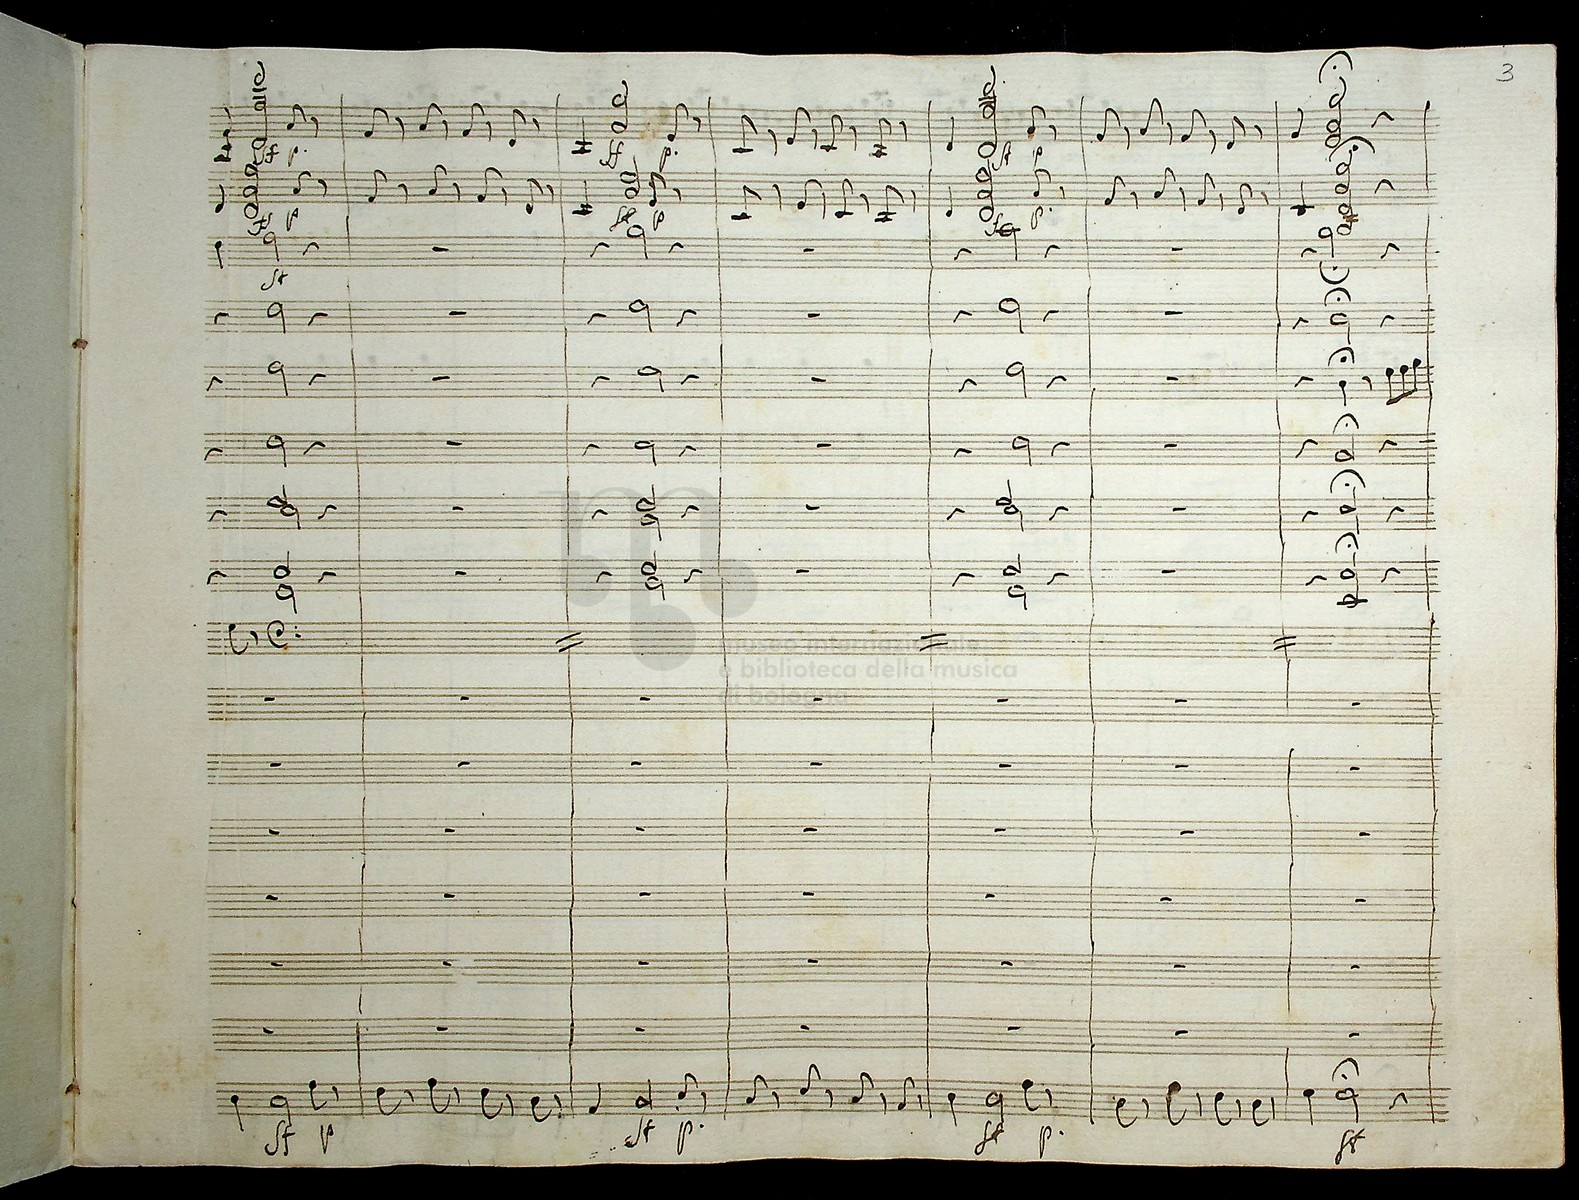 3
sf p.
sf p.
sf p
sf p
sf p
sf p.
sf
museo internazionale
e biblioteca della musica
di bologna
sf p
sf p.
sf p.
sf